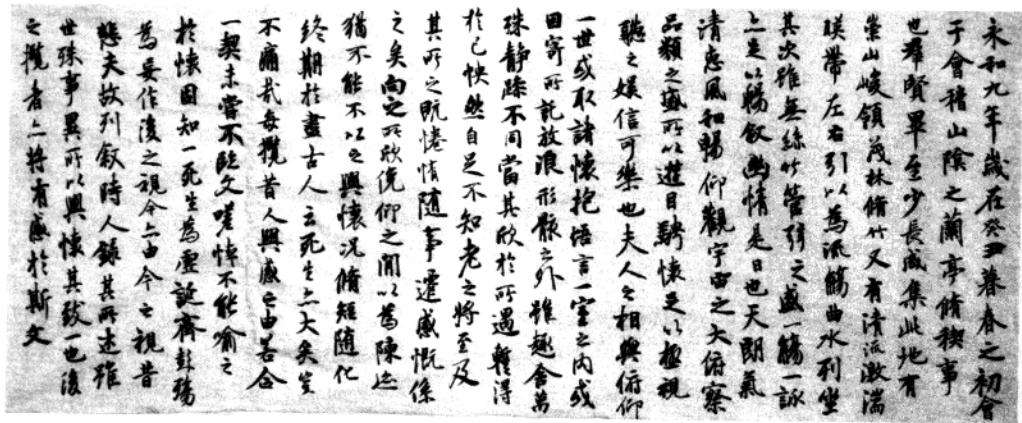 永和九年歲在癸丑暮春之初會
于會稽山陰之蘭亭脩稧事
也羣賢畢至少長咸集此地有
崇山峻領茂林脩竹又有清流激湍
暎帶左右引以為流觴曲水列坐
其次雖無絲竹管弦之盛一觴一詠
亦足以暢叙幽情是日也天朗氣
清惠風和暢仰觀宇宙之大俯察
品類之盛所以遊目騁懷足以極視
聽之娱信可樂也夫人之相與俯仰
一世或取諸懷抱悟言一室之内或
因寄所託放浪形骸之外雖趣舍萬
殊静躁不同當其欣於所遇暫得
於己怏然自足不知老之將至及
其所之既惓情隨事遷感慨係
之矣向之所欣俛仰之閒以為陳迹
猶不能不以之興懷況脩短隨化
終期於盡古人云死生亦大矣豈
不痛哉每攬昔人興感之由若合
一契未嘗不臨文嗟悼不能喻之
於懷固知一死生為虚誕齊彭殤
為妄作後之視今亦由今之視昔
悲夫故列叙時人録其所述雖
世殊事異所以興懷其致一也後
之攬者亦將有感於斯文